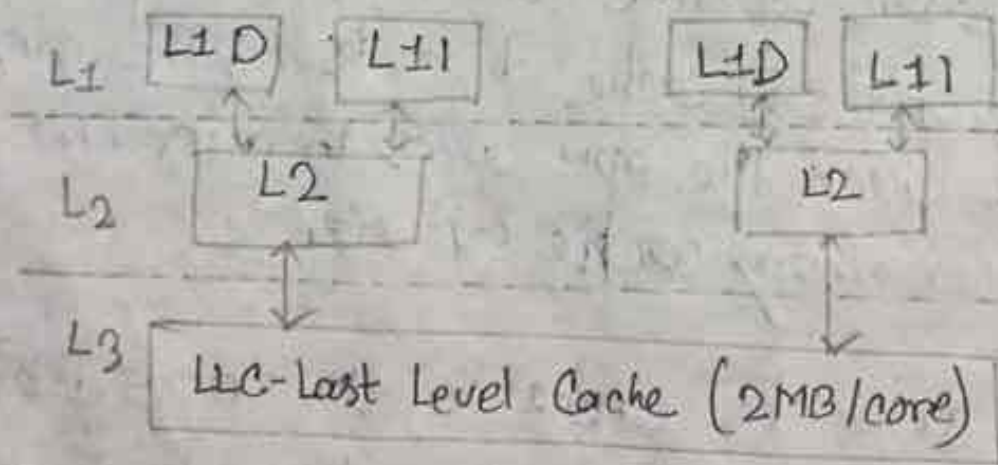 L1 L1D L1I L1D L1I
L2 L2 L2
L3 LLC-Last Level Cache (2MB/core)